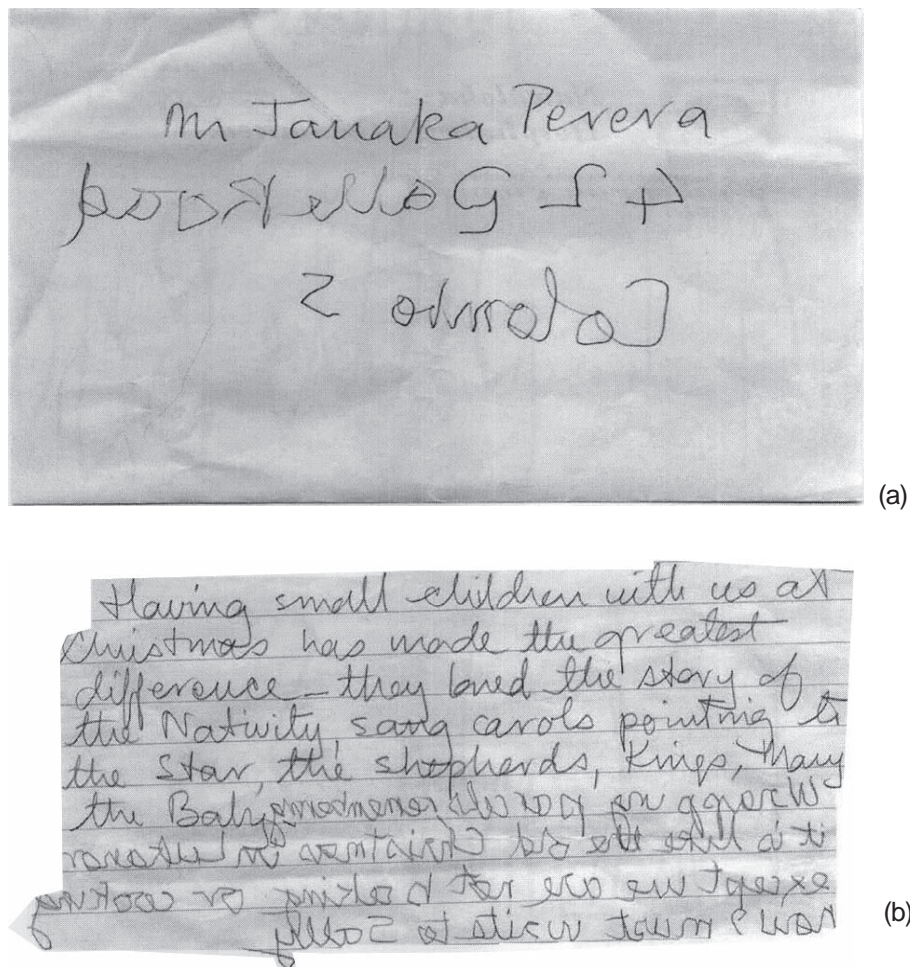 M Janaka Perera
42 Galle Road
Colombo 5
(a)
Having small children with us at
Christmas has made the greatest
difference – they loved the story of
the Nativity, sang carols pointing to
the Star, the shepherds, Kings, Mary
the Baby, Wrapping up parcels remembering
it is like the old Christmas in
except we are not baking or cooking
now I must write to Sally
(b)